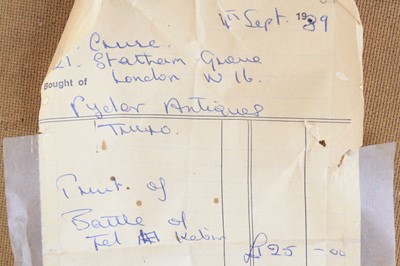 4th Sept. 1989
Cruse.
21. Statham Grove
London N 16.
Bought of
Pydar Antiques
Truro.
Print of
Battle of
Tel Kebir £125-00